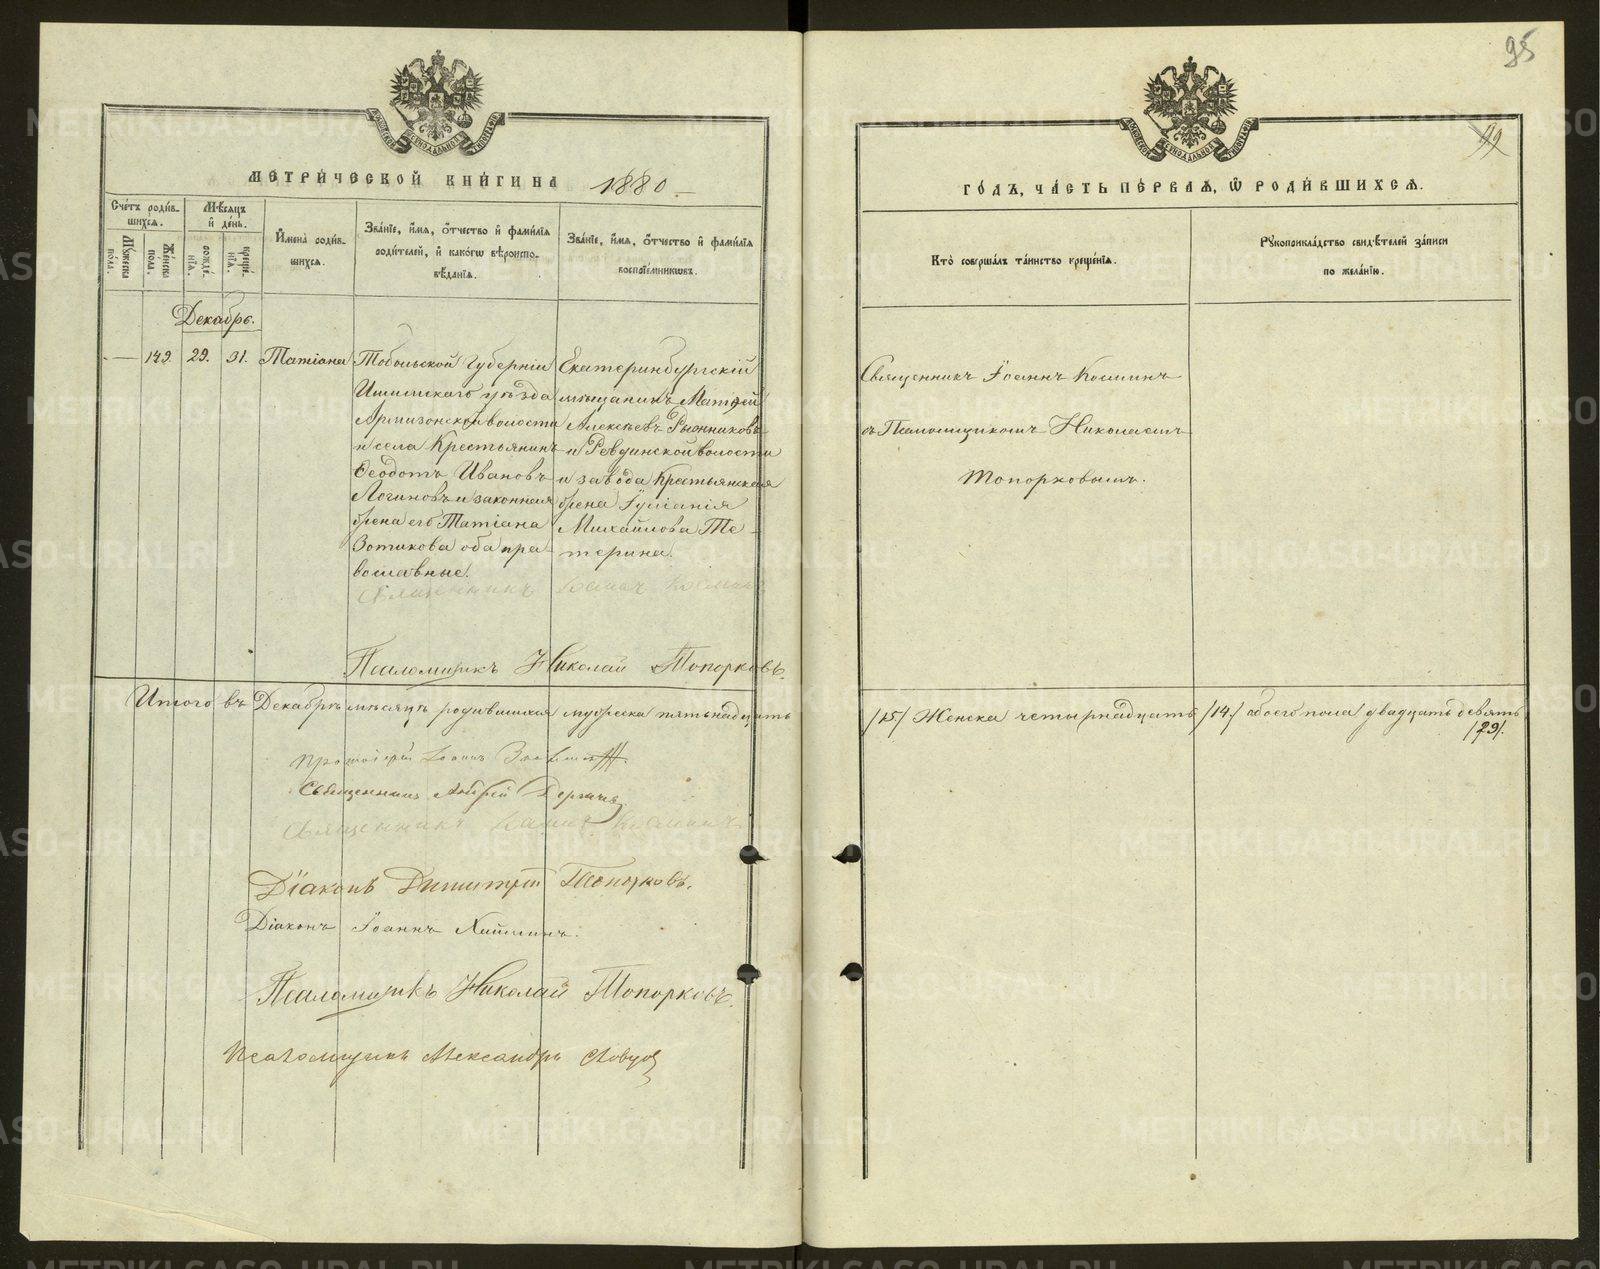 95
99
МЕТРИ́ЧЕСКОЙ КНИ́ГИ НА 1880
ГО́ДЪ, ЧА́СТЬ ПЕ́РВАЯ, Ѿ РОДИ́ВШИХСЯ.
Сче́тъ роди́вшихся.
Мѣ́сяцъ и҆ де́нь.
Му́жеска по́ла.
Же́нска по́ла.
рожде́нія.
креще́нія.
И҆мена̀ роди́вшихся.
Зва́ніе, и҆́мя, о҆́тчество и҆ фами́лія
роди́телей, и҆ како́гѡ вѣроиспо-
вѣ́данія.
Зва́ніе, и҆́мя, о҆́тчество и҆ фами́лія
воспріе́мникѡвъ.
Кто̀ соверша́лъ та́инство креще́нія.
Рукоприкла́дство свидѣ́телей за́писи
по жела́нію.
Декабрь.
— 149. 29. 31. Татіана
Тобольской Губерніи
Ишимскаго уѣзда
Армизонской волости
и села Крестьянинъ
Ѳеодотъ Ивановъ
Логиновъ и законная
жена его Татіана
Зотикова оба пра-
вославные.
Екатеринбургскій
мѣщанинъ Матѳей
Алексѣевъ
и Ревдинской волости
и завода Крестьянская
жена Іуліанія
Михайлова Те-
терина.
Священникъ Іоаннъ Косминъ
съ Псаломщикомъ Николаемъ
Топорковымъ.
Священникъ
Псаломщикъ Николай Топорковъ.
Итого въ Декабрѣ мѣсяцѣ родившихся мужеска пятьнадцать
/15/ Женска четырнадцать /14/ обоего пола двадцать девять
/29/.
Протоіерей Іоаннъ
Священникъ Андрей
Священникъ
Діаконъ Димитрій Топорковъ.
Діаконъ Іоаннъ
Псаломщикъ Николай Топорковъ.
Псаломщикъ Александръ Словцов
METRIKI.GASO-URAL.RU